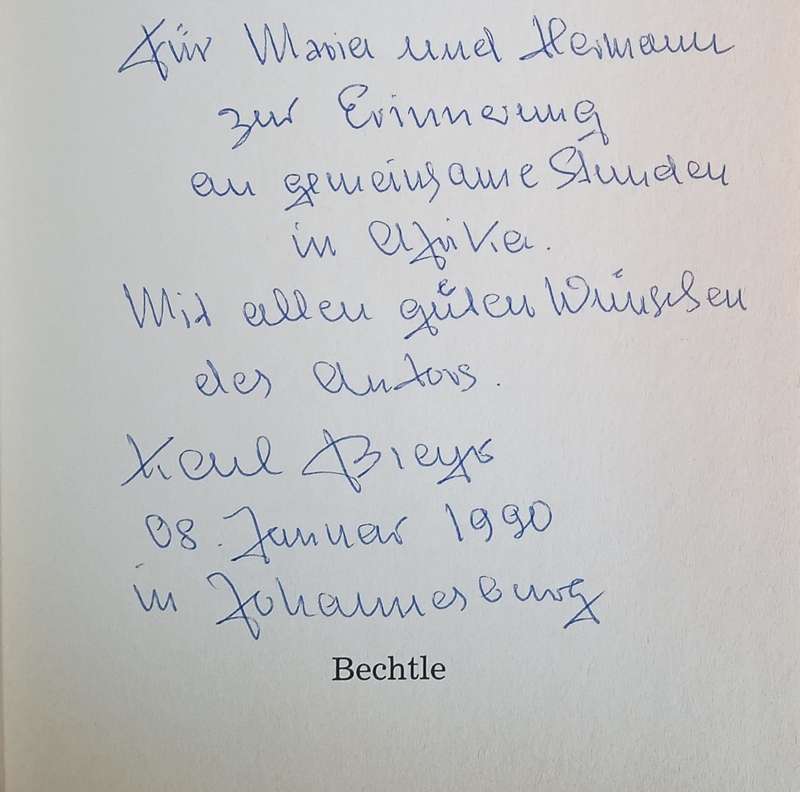 Für Maria und Hermann
zur Erinnerung
an gemeinsame Stunden
in Afrika.
Mit allen guten Wünschen
des Autors.
Karl Breyer
08. Januar 1990
in Johannesburg
Bechtle